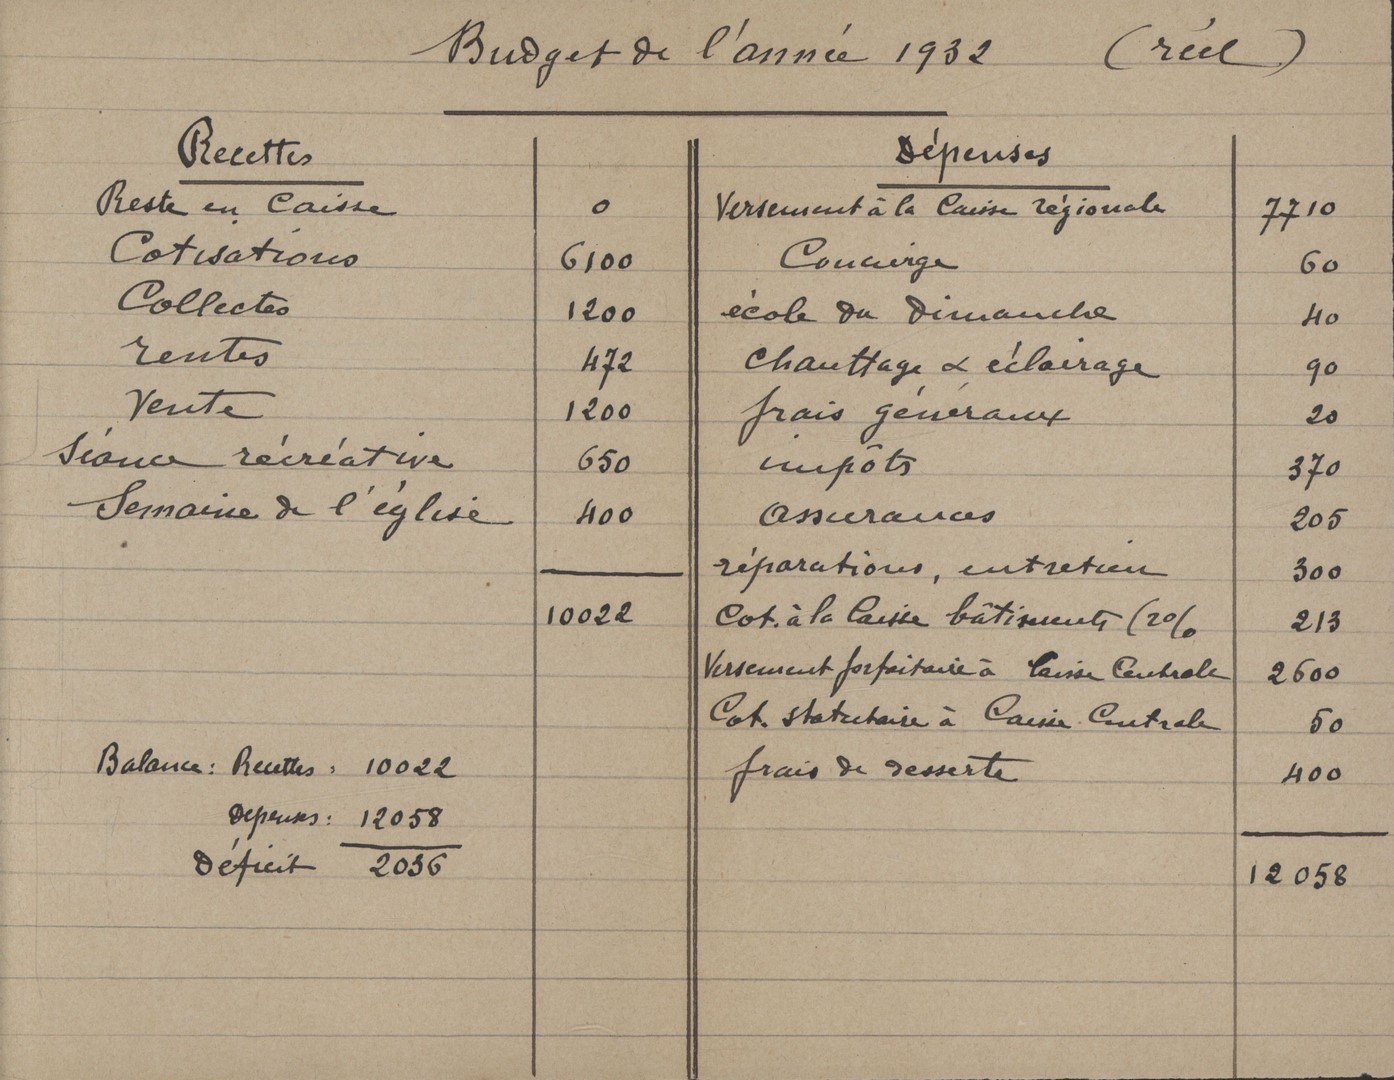 Budget de l'année 1932 (réel)
Recettes
Reste en Caisse 0
Cotisations 6100
Collectes 1200
rentes 472
Vente 1200
Séance récréative 650
Semaine de l'église 400
10022
Balance: Recettes: 10022
Dépenses: 12058
Déficit 2036
Dépenses
Versement à la Caisse régionale 7710
Concierge 60
école du Dimanche 40
Chauffage & éclairage 90
frais généraux 20
impôts 370
Assurances 205
réparations, entretien 300
Cot. à la Caisse bâtiments (2% 213
Versement forfaitaire à Caisse Centrale 2600
Cot. statutaire à Caisse Centrale 50
frais de desserte 400
12058